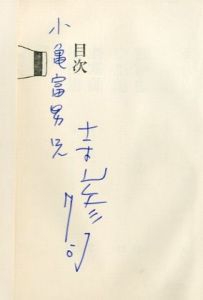 目次
小亀富男兄
寺山修司